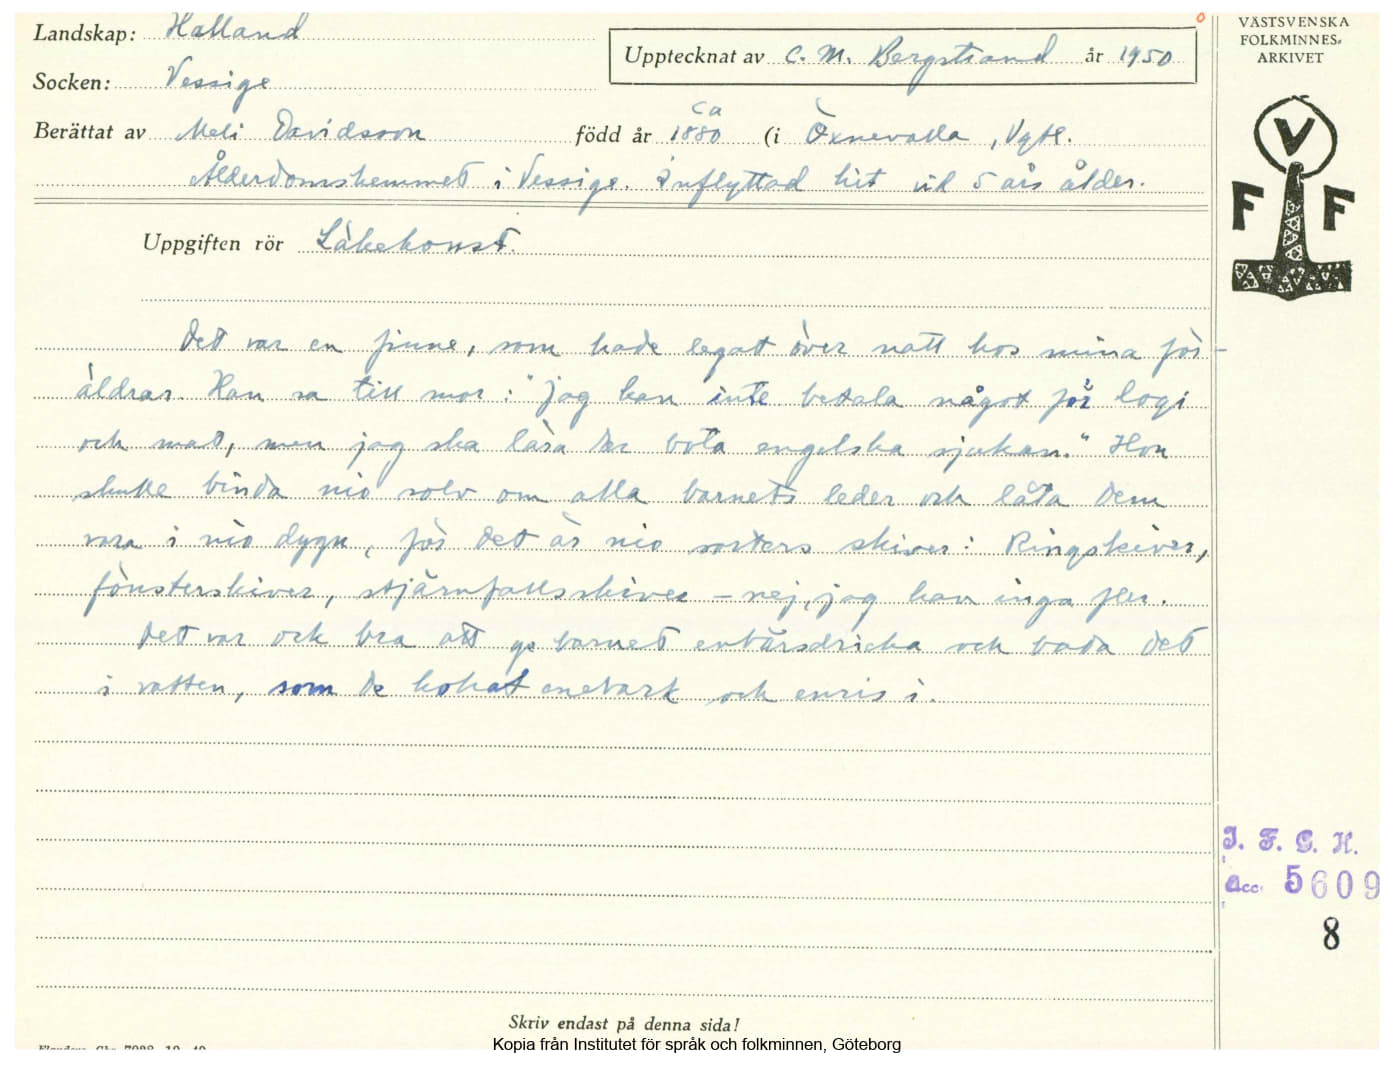 Landskap: Halland
Upptecknat av C. M. Bergstrand år 1950
VÄSTSVENSKA
FOLKMINNES-
ARKIVET
Socken: Vessige
Berättat av Meli Davidsson född år ca 1880 (i Öxnevalla, Vgtl.
Ålderdomshemmet i Vessige. Inflyttad hit vid 5 års ålder.
V
F F
Uppgiften rör Läkekonst.
Det var en finne, som hade legat över natt hos mina för-
äldrar. Han sa till mor: "Jag kan inte betala något för logi
och mat, men jag ska lära der bota engelska sjukan." Hon
skulle binda nio solv om alla barnets leder och låta dem
vara i nio dygn, för det är nio sorters skiver: Ringskiver,
fönsterskiver, stjärnfallsskiver – nej, jag kan inga fler.
Det var ock bra att ge barnet enbärsdricka och bada det
i vatten, som de kokat enebark och enris i.
I. F. G. H.
acc. 5609
8
Skriv endast på denna sida!
Kopia från Institutet för språk och folkminnen, Göteborg